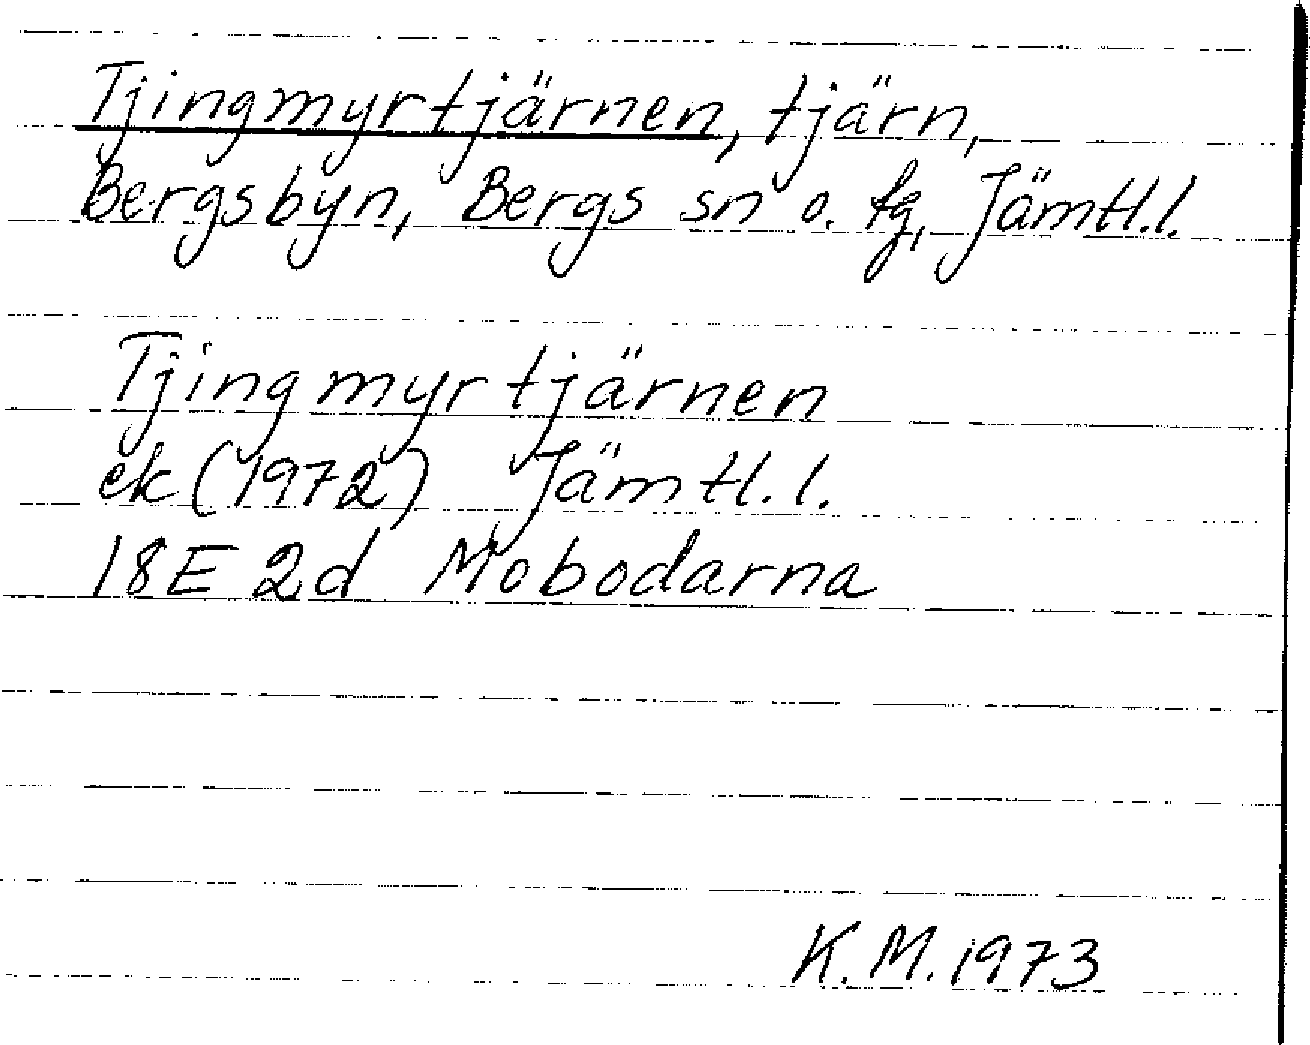 Tjingmyrtjärnen, tjärn,
Bergsbyn, Bergs sn o. tg, Jämtl.l.
Tjingmyrtjärnen
ek (1972) Jämtl.l.
18E 2d Mobodarna
K.M. 1973